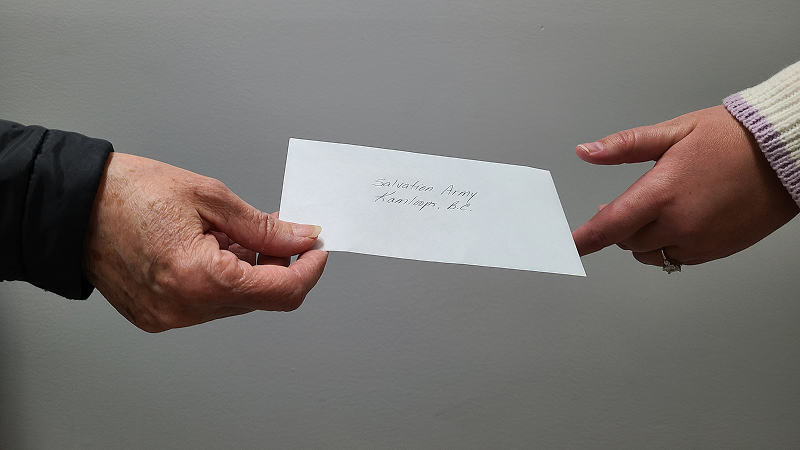 Salvation Army
Kamloops, B.C.